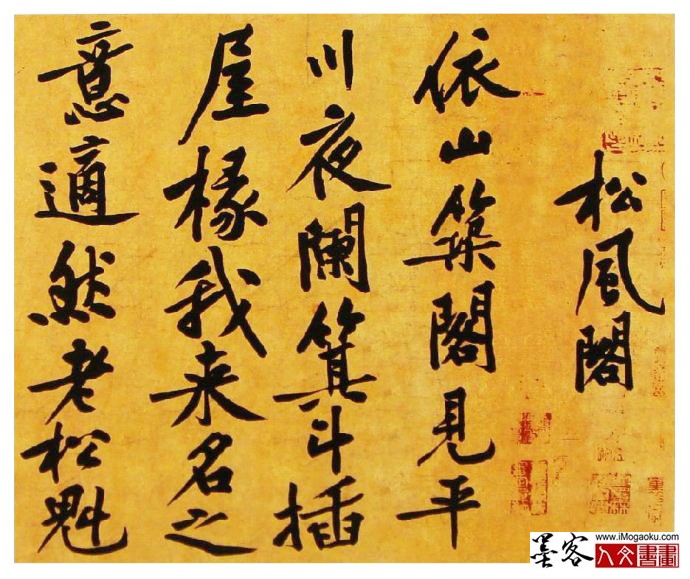 松風閣
依山築閣見平
川夜闌箕斗插
屋椽我来名之
意適然老松魁
墨客
www.iMogaoku.com
人文書畫